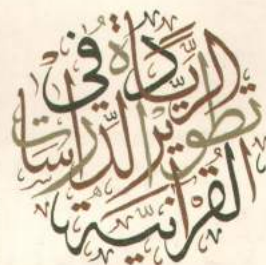 الرِّيَادَة في
تطوير الدِّراسات
القرآنية